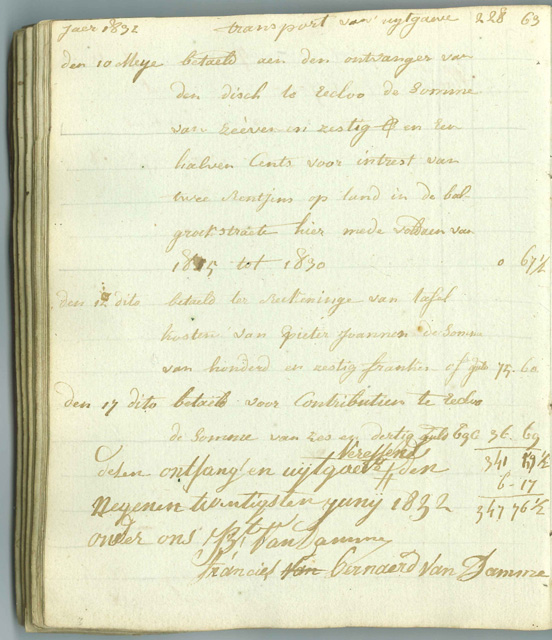 Jaer 1832 transport van uytgaeve 228 63
den 10 Meye betaeld aen den ontvanger van
den disch te Eecloo de Somme
van zeeven en zestig en een
halven Cents voor intrest van
twee Rentjens op land in de bal
groekstraete hier mede voldaen van
1815 tot 1830 0 67½
den 12 dito betaeld ter Rekeninge van tafel
kosten van Pieter Joannes de Somme
van honderd en zestig franken of 75-60
den 17 dito betaeld voor Contributien te Eecloo
de Somme van zes en dertig 69C 36-69
Vereffend 341
desen ontfang en uytgaeve den 6-17
Negenen twentigsten Junij 1832 347 76½
onder ons B: Van Damme
Francies van Bernaerd Van Damme